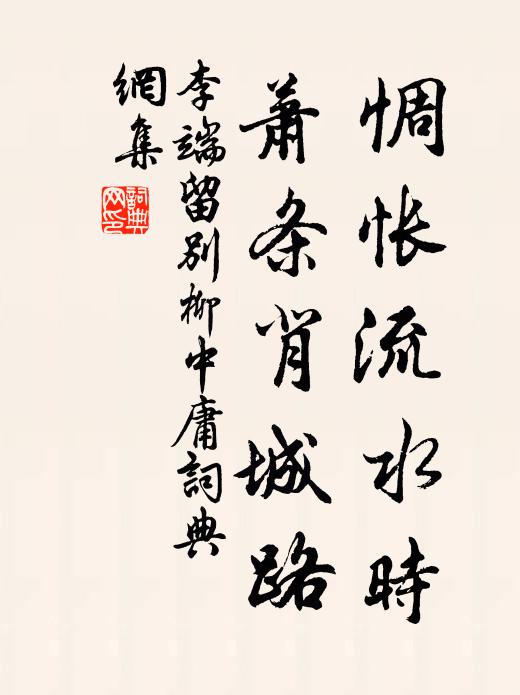 惆怅流水時
蕭条背城路
李端留別柳中庸詞典
網集
詞典网印